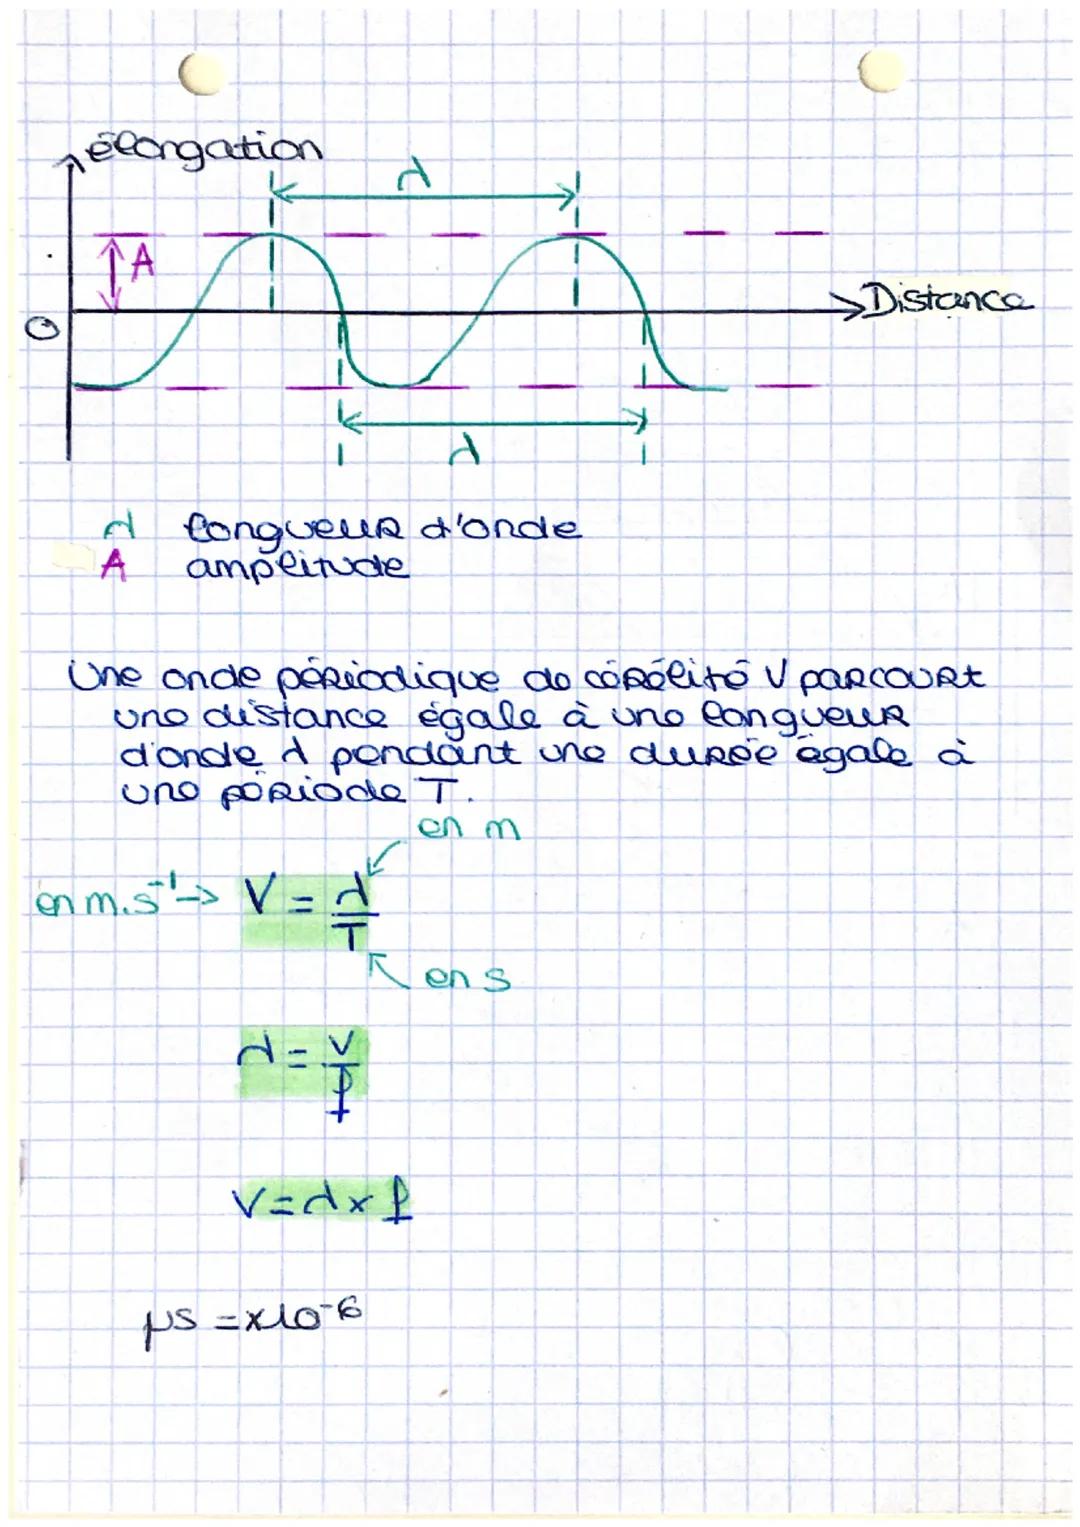 élongation
λ
A
Distance
O
λ
λ longueur d'onde
A amplitude
Une onde périodique de célérité V parcourt
une distance égale à une longueur
d'onde λ pendant une durée égale à
une période T.
en m
en m.s⁻¹ → V = λ/T
en s
λ = V/f
V = λ x f
µs = x10⁻⁶